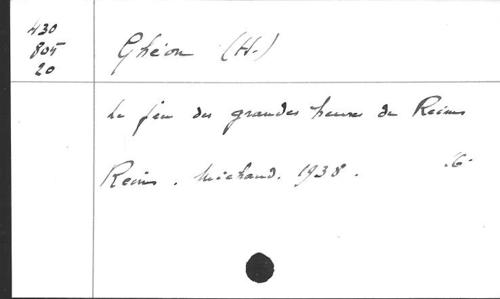 430
805
20
Ghéon (H.)
Le jeu des grandes heures de Reims
Reims. Michaud. 1938.